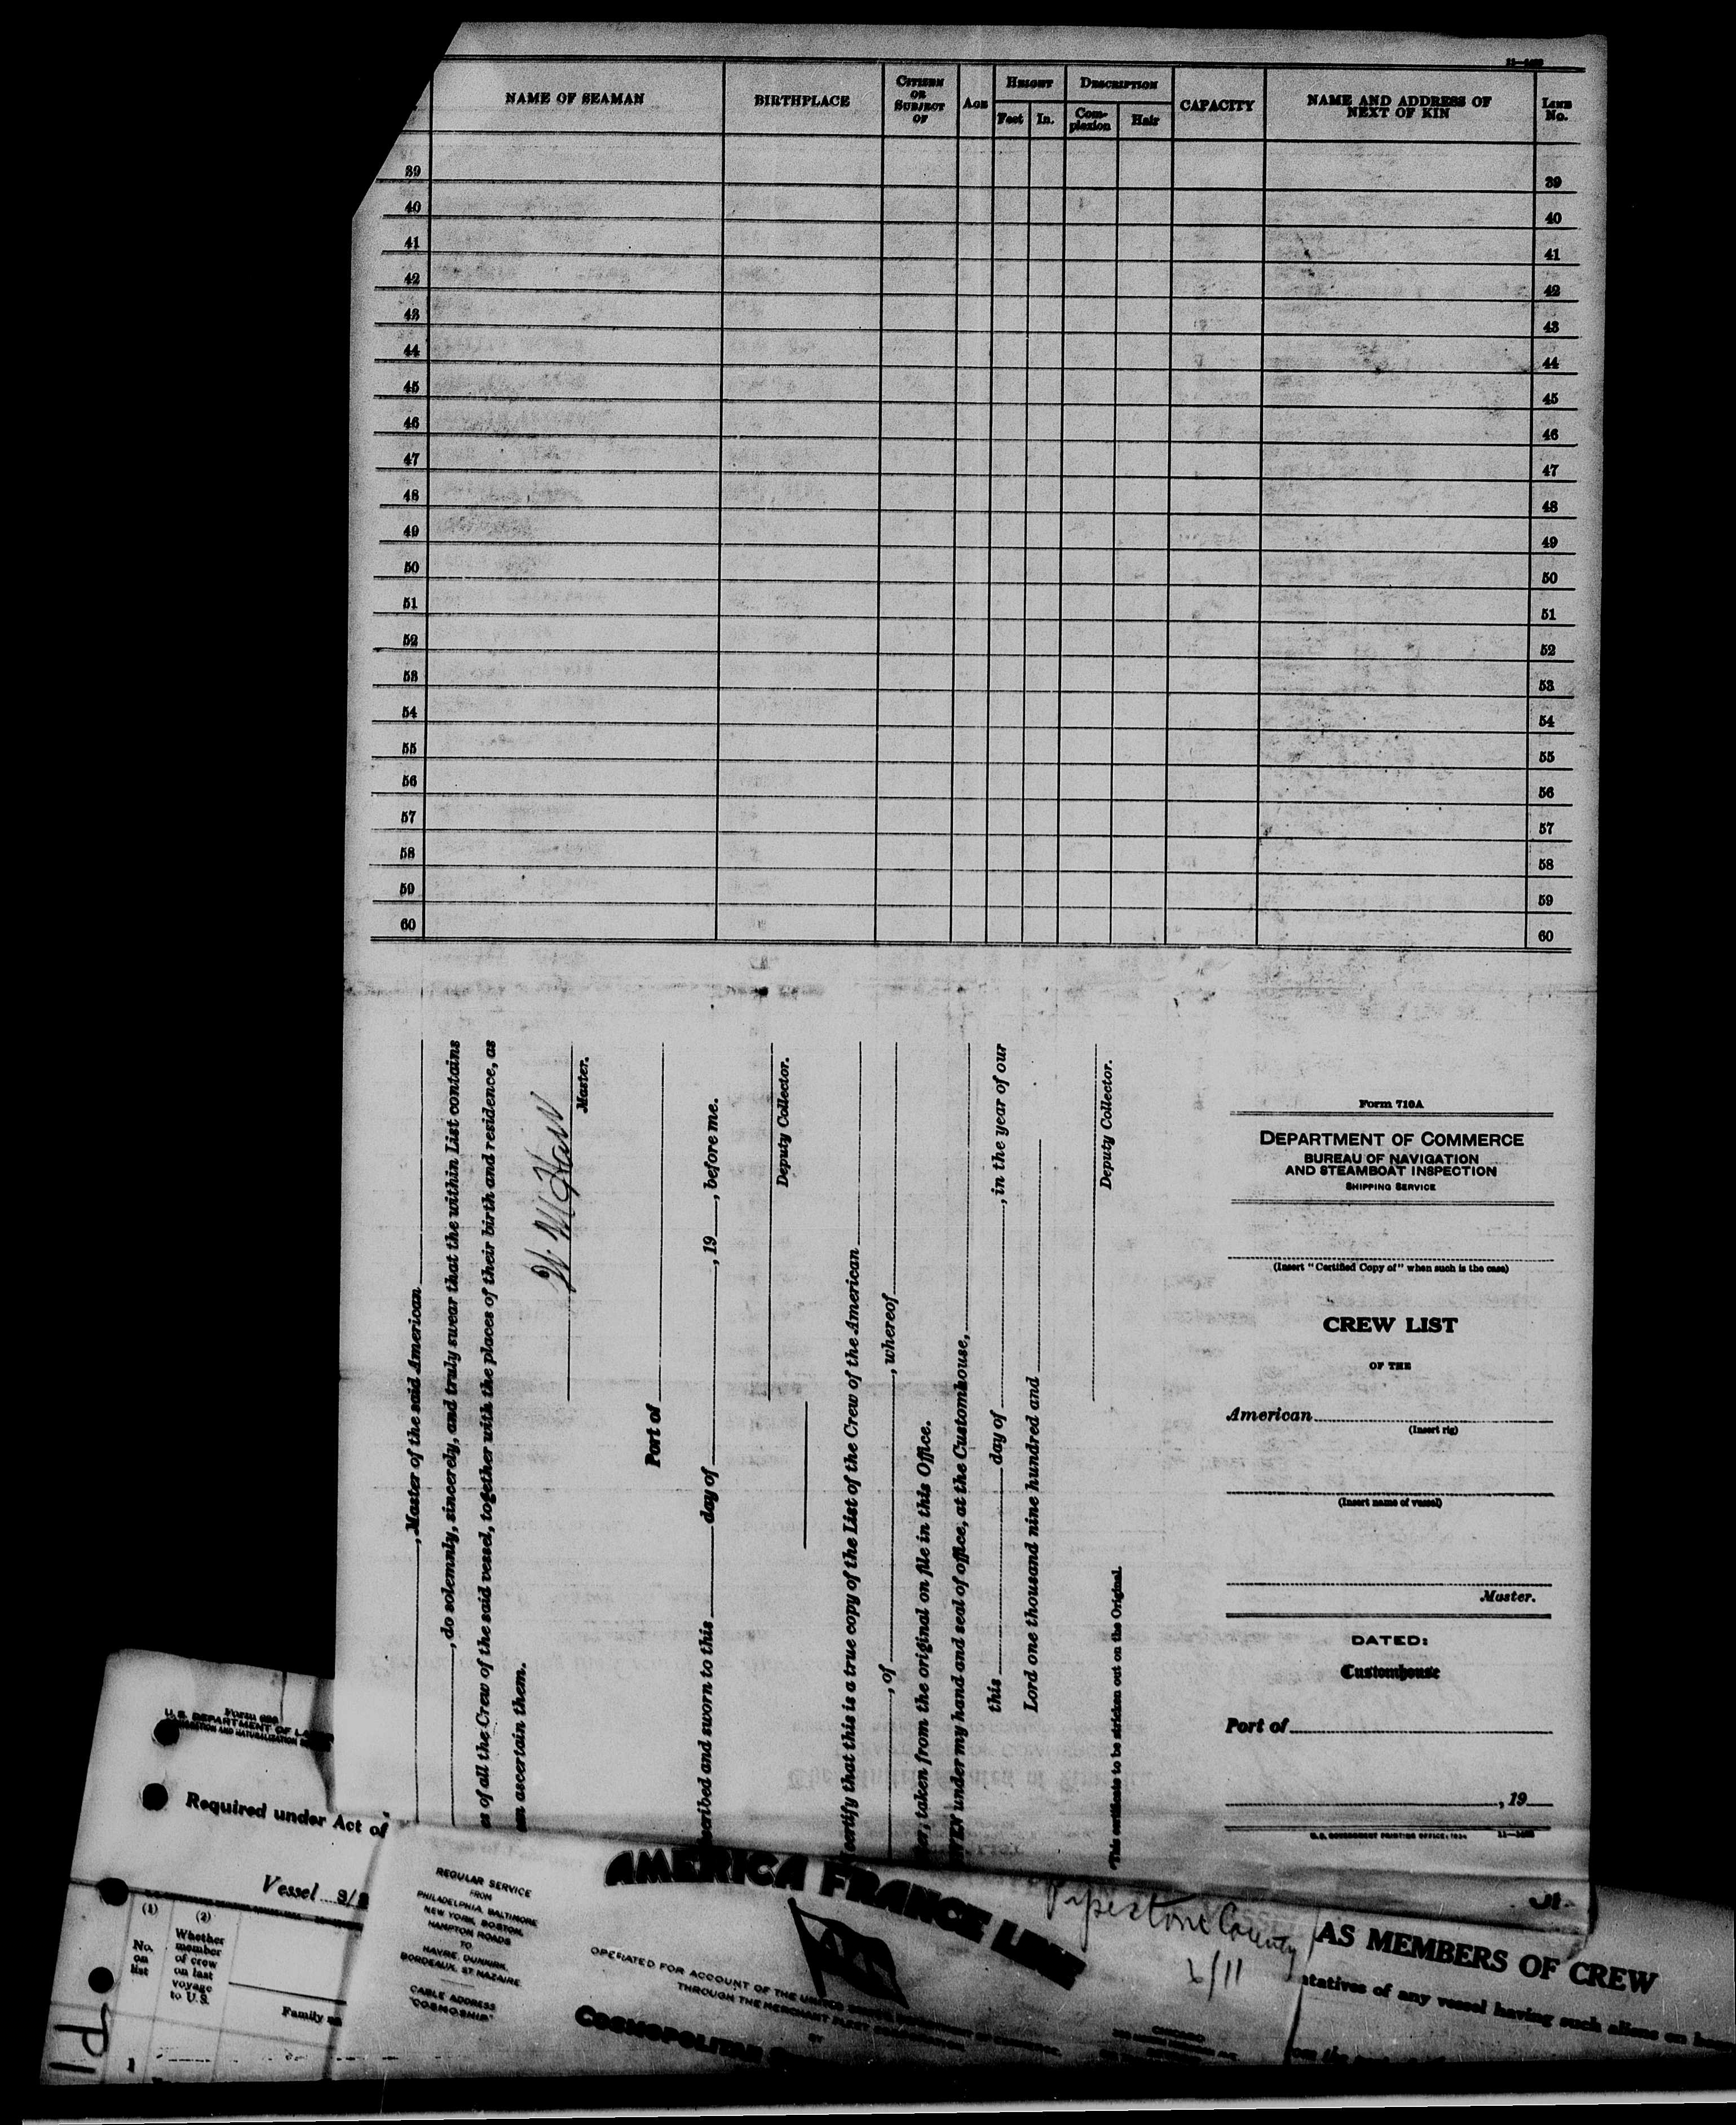 11—1498
NAME OF SEAMAN
BIRTHPLACE
CITIZEN OR SUBJECT OF
AGE
HEIGHT
Feet
In.
DESCRIPTION
Complexion
Hair
CAPACITY
NAME AND ADDRESS OF NEXT OF KIN
LINE No.
39 39
40 40
41 41
42 42
43 43
44 44
45 45
46 46
47 47
48 48
49 49
50 50
51 51
52 52
53 53
54 54
55 55
56 56
57 57
58 58
59 59
60 60
, Master of the said American
, do solemnly, sincerely, and truly swear that the within List contains
es of all the Crew of the said vessel, together with the places of their birth and residence, as
an ascertain them.
Master.
Port of
scribed and sworn to this day of , 19 , before me.
Deputy Collector.
ertify that this is a true copy of the List of the Crew of the American
, of , whereof
er; taken from the original on file in this Office.
IVEN under my hand and seal of office, at the Customhouse,
this day of , in the year of our
Lord one thousand nine hundred and
Deputy Collector.
This certificate to be stricken out on the Original.
Form 710A
DEPARTMENT OF COMMERCE
BUREAU OF NAVIGATION
AND STEAMBOAT INSPECTION
SHIPPING SERVICE
(Insert "Certified Copy of" when such is the case)
CREW LIST
OF THE
American
(Insert rig)
(Insert name of vessel)
Master.
DATED:
Customhouse
Port of
, 19
U.S. GOVERNMENT PRINTING OFFICE: 1934
Form 689
U.S. DEPARTMENT OF LA
Required under Act of
Vessel
(1)
(2)
No. on list
Whether member of crew on last voyage to U.S.
Family na
1
REGULAR SERVICE
FROM
PHILADELPHIA, BALTIMORE
NEW YORK, BOSTON,
HAMPTON ROADS
TO
HAVRE, DUNKIRK,
BORDEAUX, ST NAZAIRE
CABLE ADDRESS
"COSMOSHIP"
AMERICA FRANCE LINE
AFL
OPERATED FOR ACCOUNT OF THE UNITED STATES DEPARTMENT OF COMMERCE
THROUGH THE MERCHANT FLEET CORPORATION
BY
COSMOPOLITAN
Pipestone County
6/11
AS MEMBERS OF CREW
ntatives of any vessel having such aliens on